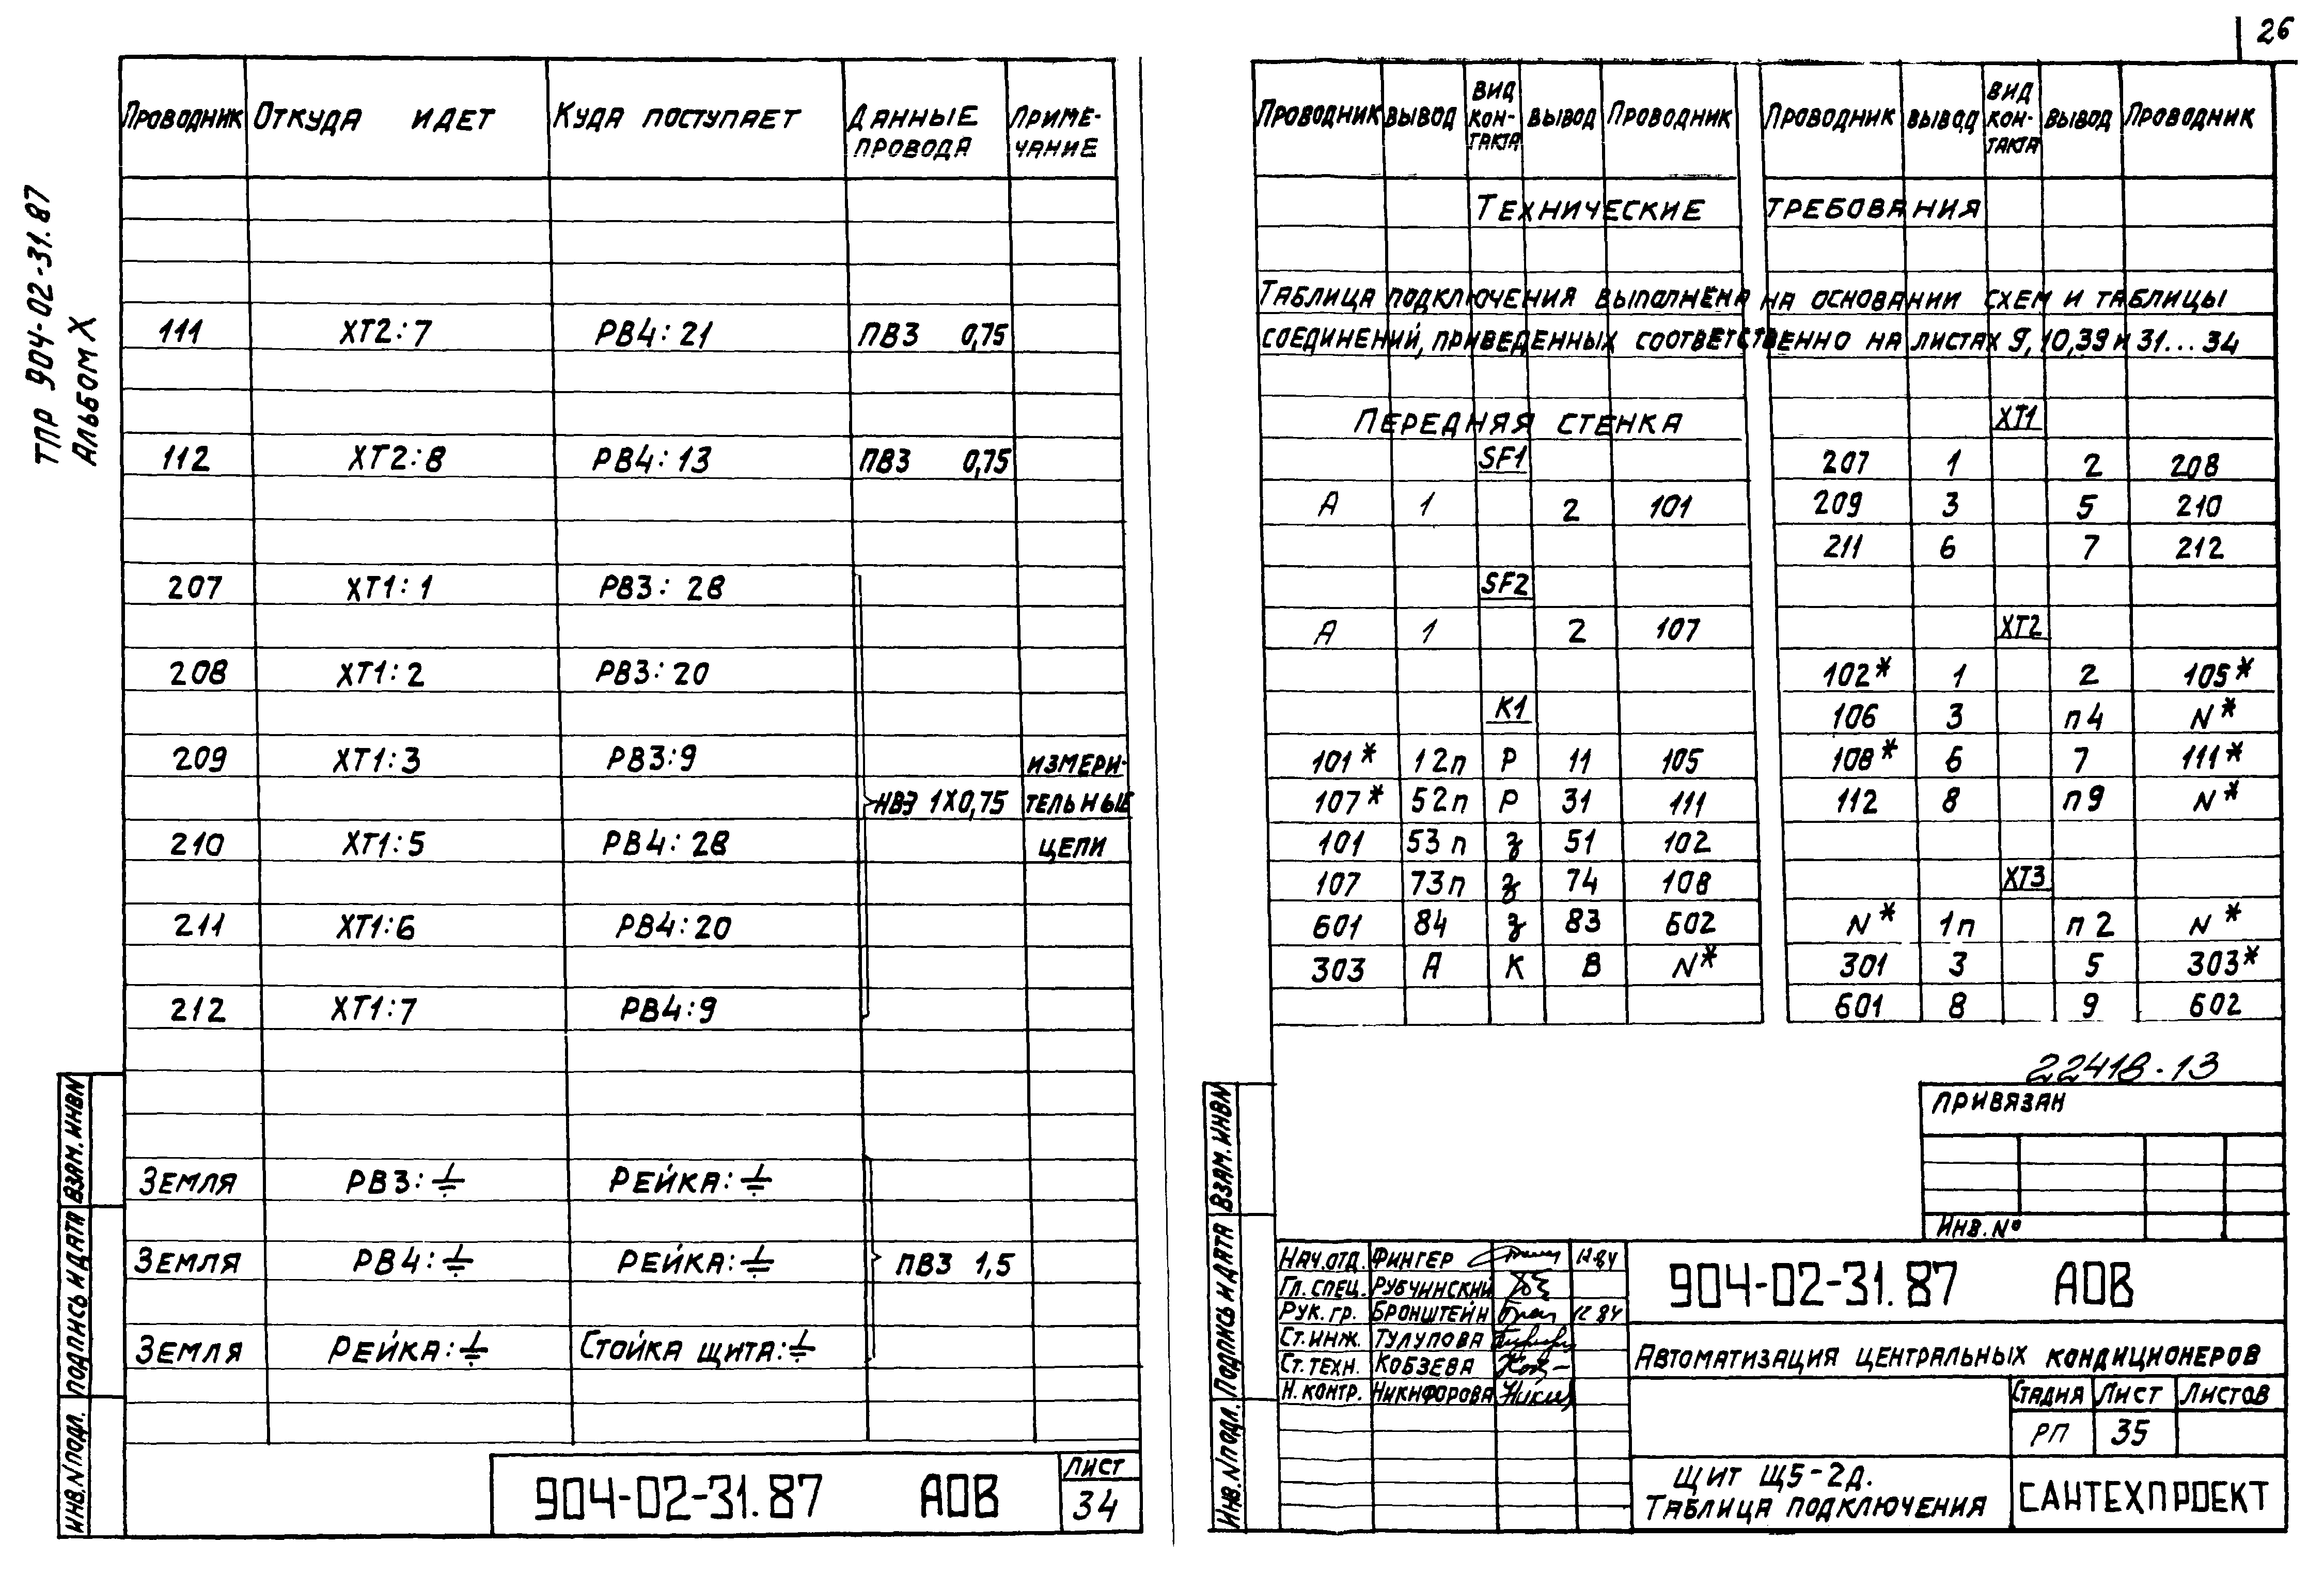 26
ТПР 904-02-31.87
Альбом X
Проводник Откуда идет Куда поступает Данные провода Примечание
111 ХТ2:7 РВ4:21 ПВ3 0,75
112 ХТ2:8 РВ4:13 ПВ3 0,75
207 ХТ1:1 РВ3:28
208 ХТ1:2 РВ3:20
209 ХТ1:3 РВ3:9 Измери-
НВЭ 1х0,75 тельные
210 ХТ1:5 РВ4:28 цепи
211 ХТ1:6 РВ4:20
212 ХТ1:7 РВ4:9
Земля РВ3:⏚ Рейка:⏚
Земля РВ4:⏚ Рейка:⏚ ПВ3 1,5
Земля Рейка:⏚ Стойка щита:⏚
Инв.N подл. Подпись и дата Взам.инвN
904-02-31.87 АОВ
Лист
34
Проводник Вывод Вид контакта Вывод Проводник Проводник Вывод Вид контакта Вывод Проводник
Технические требования
Таблица подключения выполнена на основании схем и таблицы
соединений, приведенных соответственно на листах 9, 10,39 и 31...34
Передняя стенка
SF1
А 1 2 101
SF2
А 1 2 107
К1
101* 12п Р 11 105
107* 52п Р 31 111
101 53п з 51 102
107 73п з 74 108
601 84 з 83 602
303 А К В N*
ХТ1
207 1 2 208
209 3 5 210
211 6 7 212
ХТ2
102* 1 2 105*
106 3 п4 N*
108* 6 7 111*
112 8 п9 N*
ХТ3
N* 1п п2 N*
301 3 5 303*
601 8 9 602
22418-13
Привязан
Инв.№
Инв.N подл. Подпись и дата Взам.инвN
Нач.отд. Фингер
Гл.спец. Рубчинский
Рук.гр. Бронштейн
Ст.инж. Тулупова
Ст.техн. Кобзева
Н.контр. Никифорова
904-02-31.87 АОВ
Автоматизация центральных кондиционеров
Стадия Лист Листов
РП 35
Щит Щ5-2Д.
Таблица подключения
САНТЕХПРОЕКТ